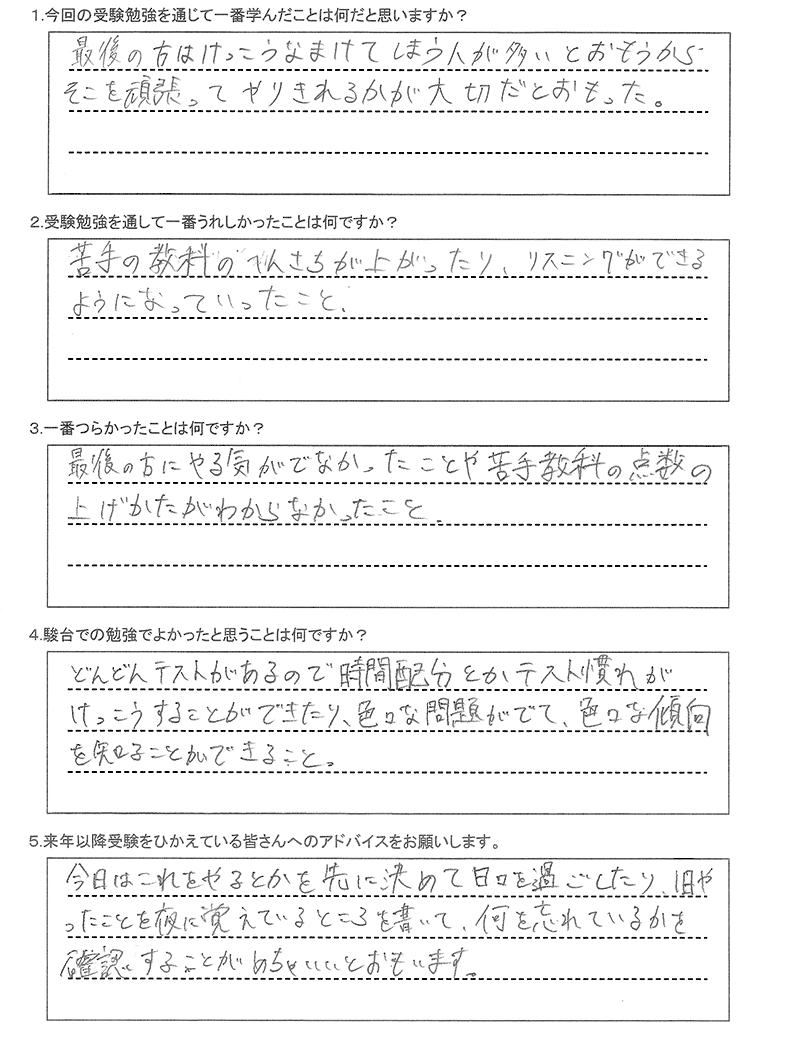 1.今回の受験勉強を通じて一番学んだことは何だと思いますか？
最後の方はけっこうなまけてしまう人が多いとおもうから
そこを頑張ってやりきれるかが大切だとおもった。
2.受験勉強を通して一番うれしかったことは何ですか？
苦手の教科のへんさちが上がったり、リスニングができる
ようになっていったこと.
3.一番つらかったことは何ですか？
最後の方にやる気がでなかったことや苦手教科の点数の
上げかたがわからなかったこと.
4.駿台での勉強でよかったと思うことは何ですか？
どんどんテストがあるので時間配分とかテスト慣れが
けっこうすることができたり、色々な問題がでて、色々な傾向
を知ることができること。
5.来年以降受験をひかえている皆さんへのアドバイスをお願いします。
今日はこれをやるとかを先に決めて日々を過ごしたり、1日や
ったことを夜に覚えているところを書いて、何を忘れているかを
確認することがめちゃいいとおもいます。